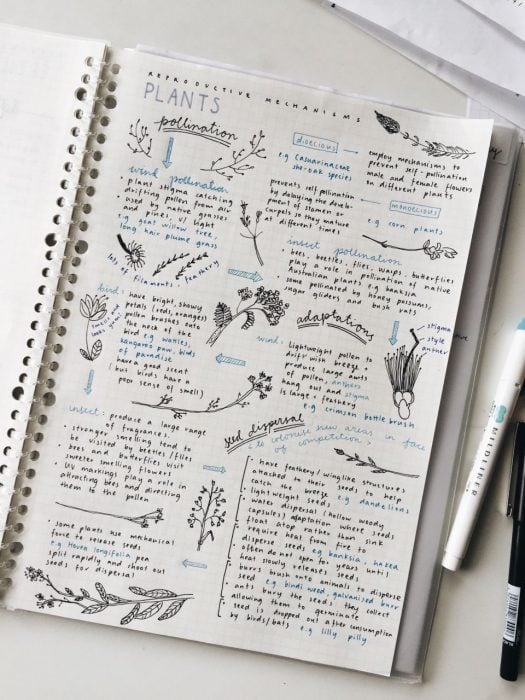 REPRODUCTIVE MECHANISMS
PLANTS
pollination
wind pollination
plant stigma catching
drifting pollen from air
used by native grasses
and pines, v/ light
e.g. goat willow tree,
long hair plume grass
lots of filaments. feathery
dioecious
e.g Casuarinaceae
she-oak species
employ mechanisms to
prevent self-pollination
male and female flowers
on different plants
prevents self pollination
by delaying the develop-
pment of stamen or
carpels so they mature
at different times
monoecious
e.g corn plants
insect pollination
• bees, beetles, flies, wasps, butterflies
play a role in pollination of native
Australian plants e.g banksia
• some pollinated by honey possums,
sugar gliders and bush rats
bird:
• have bright, showy
petals (reds, oranges)
• pollen brushes onto
the neck of the
bird e.g wattles,
kangaroo paw, birds
of paradise
• have a good scent
( but birds have a
poor sense of smell)
smells and
looks great!
adaptations
wind:
lightweight pollen to
drift with breeze
• produce large amts
of pollen, anthers
hang out and stigma
is large + feathery
e.g crimson bottle brush
stigma
style
anther
insect:
produce a large range
of fragrances.
• stronger smelling tend to
be visited by beetles/flies
• bees and butterflies visit
sweeter smelling flowers
• UV markings play a role in
attracting bees and directing
them to the pollen
seed dispersal
(to colonise new areas in face
of competition)
• have feathery/winglike structures
attached to their seeds to help
catch the breeze e.g dandelions
• light weight seeds
• water dispersal (hollow woody
capsules) adaptation where seeds
float atop rather than sink
• require heat from fire to
disperse seeds e.g banksia, hakea
• often do not open for years until
heat slowly releases seeds
• burrs brush onto animals to disperse
seed e.g bindi weed, galvanised burr
• ants bury the seeds they collect
allowing them to germinate
• seed is dropped out after consumption
by birds/bats e.g lilly pilly
• some plants use mechanical
force to release seeds
e.g Hovea longifolia pea
• split rapidly and shoot out
seeds for dispersal
MILDLINER